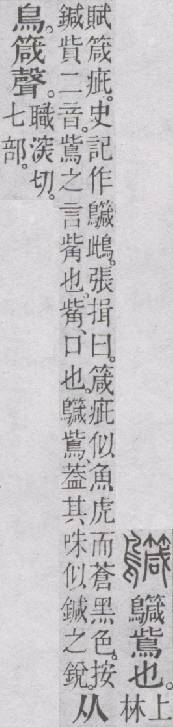 鴜也。上林
賦箴疵。史記作鴜。張揖曰。箴疵似魚虎而蒼黑色。按
鍼貲二音。鴜之言觜也。觜、口也。鴜、葢其咮似鍼之銳。从
鳥箴聲。職深切。
七部。